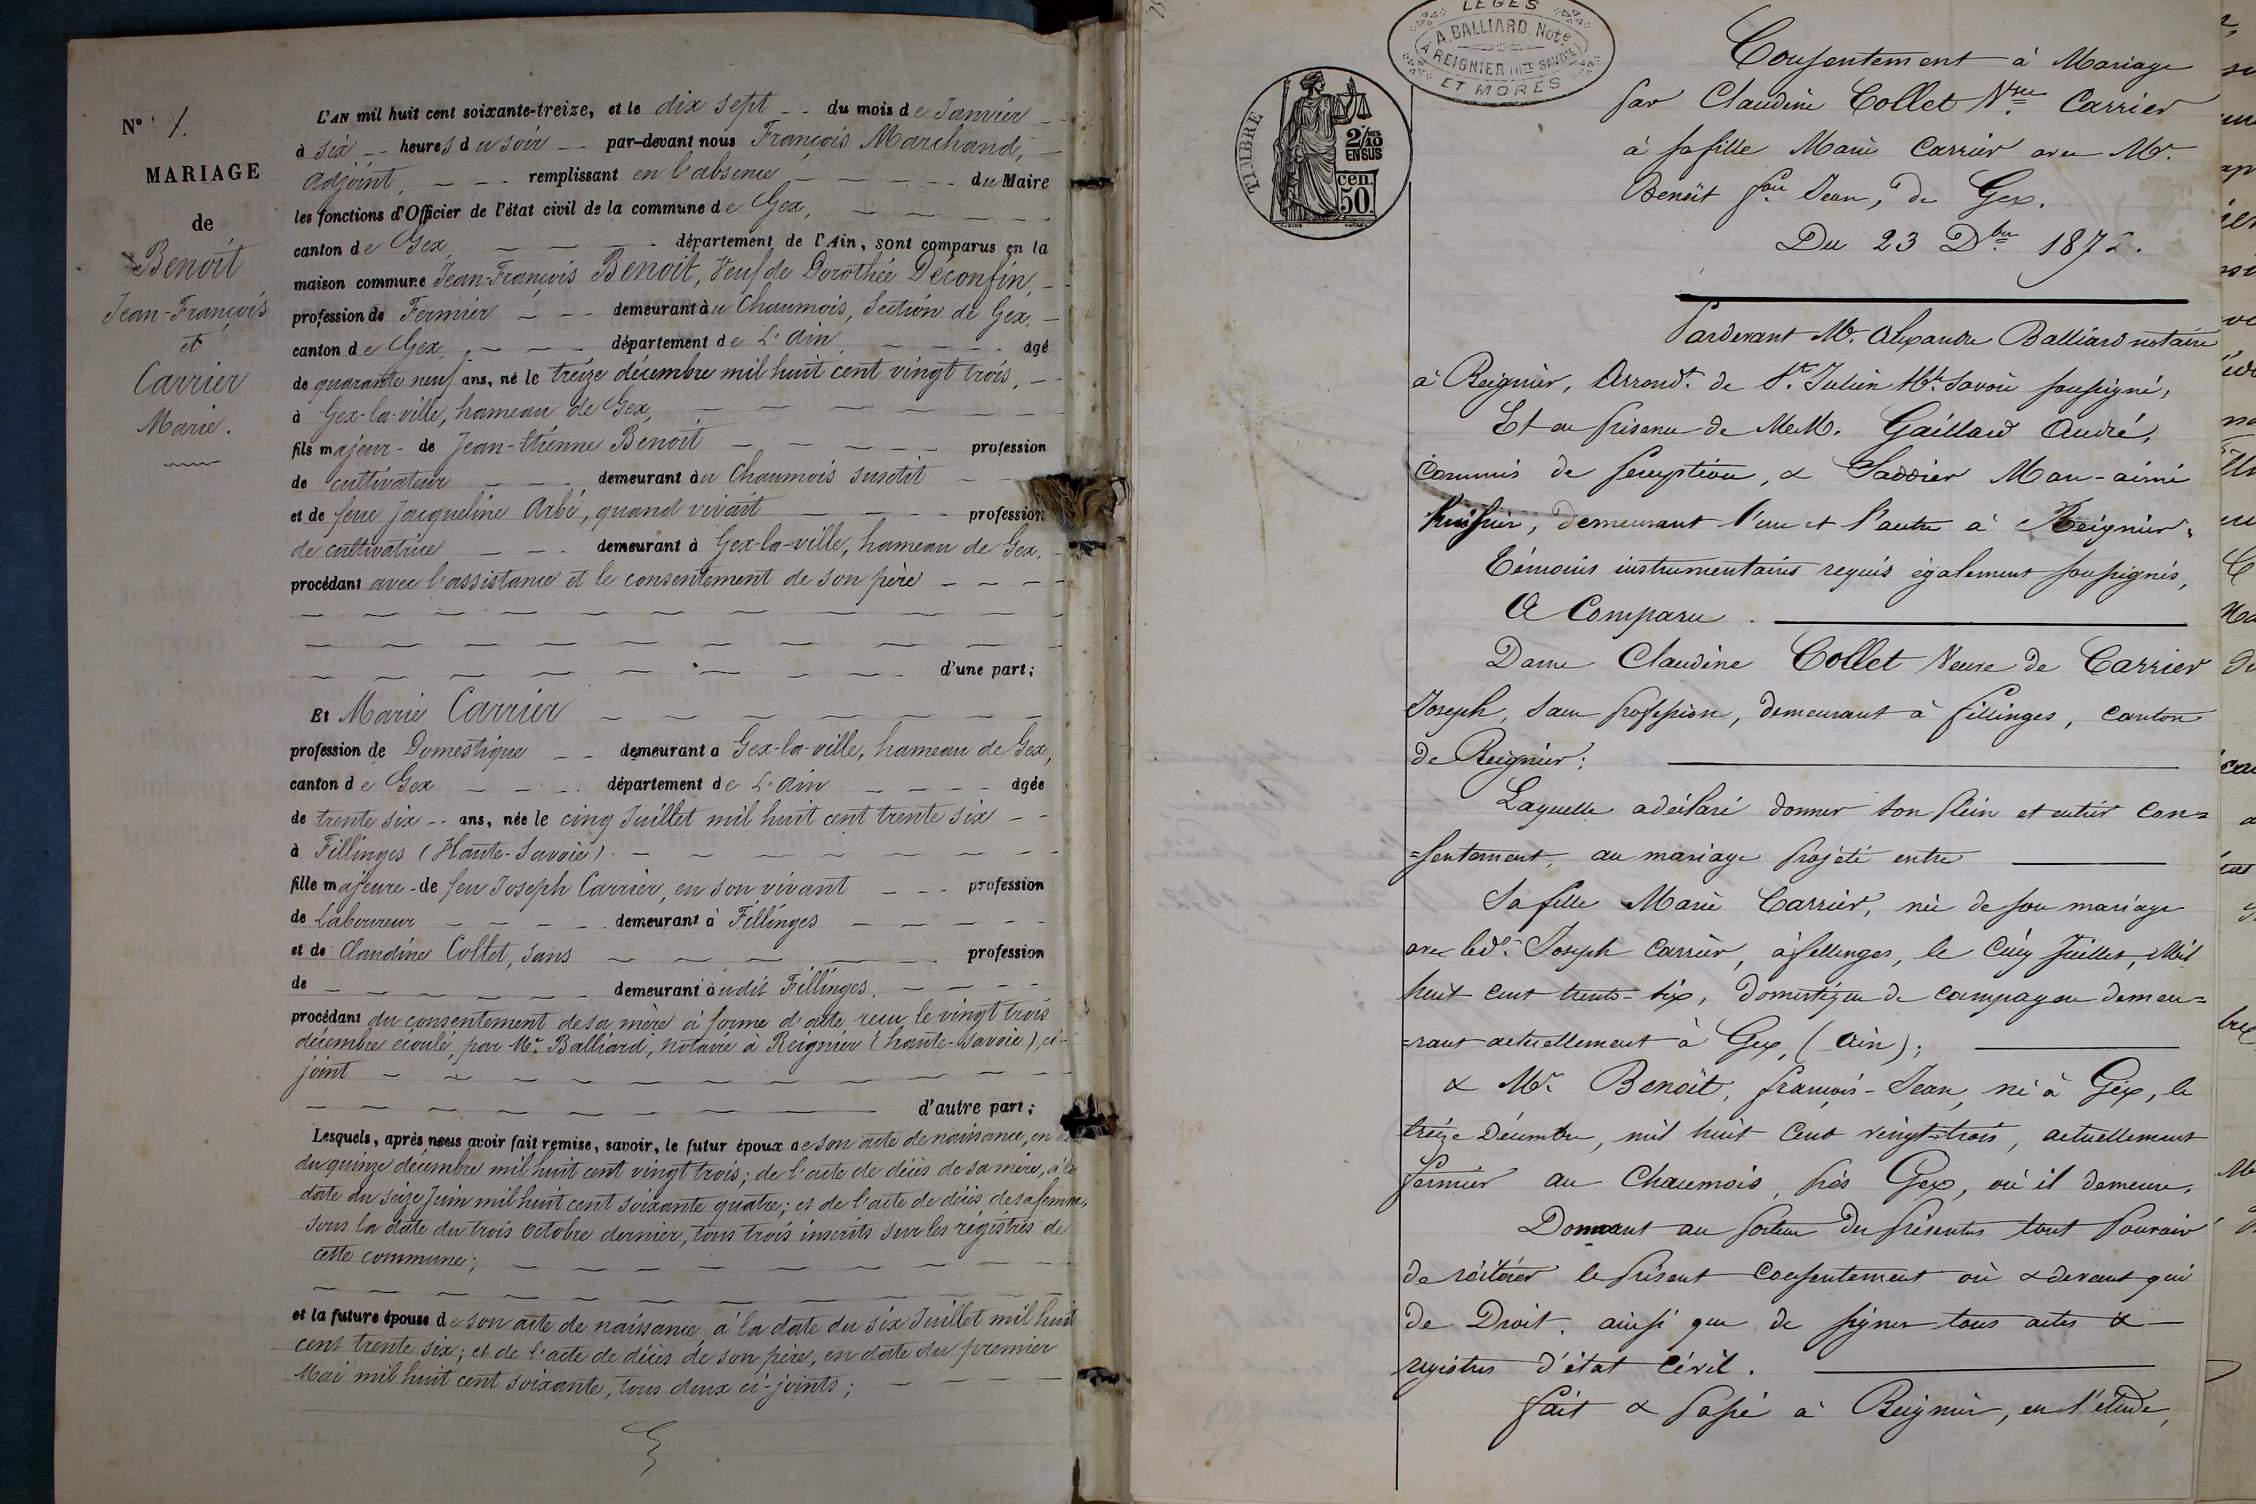 N° 1.
MARIAGE
de
Benoit
Jean-François
et
Carrier
Marie.
L'AN mil huit cent soixante-treize, et le dix sept du mois de Janvier
à six heures du soir par-devant nous François Marchand,
adjoint, remplissant en l'absence du Maire
les fonctions d'Officier de l'état civil de la commune de Gex,
canton de Gex département de l'Ain, sont comparus en la
maison commune Jean-François Benoit, Veuf de Dorothée Déconfin,
profession de Fermier demeurant au Chaumois, Section de Gex,
canton de Gex, département de L'Ain, agé
de quarante neuf ans, né le treize décembre mil huit cent vingt trois,
à Gex-la-ville, hameau de Gex,
fils majeur de Jean-Etienne Benoit profession
de cultivateur demeurant au Chaumois susdit
et de feue Jacqueline Arbé, quand vivait profession
de cultivatrice demeurant à Gex-la-ville, hameau de Gex,
procédant avec l'assistance et le consentement de son père
d'une part;
Et Marie Carrier
profession de Domestique demeurant a Gex-la-ville, hameau de Gex,
canton de Gex département de L'Ain agée
de trente six ans, née le cinq Juillet mil huit cent trente six
à Fillinges (Haute-Savoie)
fille majeure de feu Joseph Carrier, en son vivant profession
de Laboureur demeurant à Fillinges
et de Claudine Collet, sans profession
de demeurant audit Fillinges,
procédant du consentement de sa mère à forme d'acte reçu le vingt trois
décembre écoulé, par Mr. Balliard, notaire à Reignier (haute-Savoie), ci-
joint
d'autre part;
Lesquels, après nous avoir fait remise, savoir, le futur époux de son acte de naissance, en
du quinze décembre mil huit cent vingt trois; de l'acte de décès de sa mère, à la
date du seize Juin mil huit cent soixante quatre; et de l'acte de décès de sa femme,
sous la date du trois Octobre dernier, tous trois inscrits sur les régistres de
cette commune;
et la future épouse de son acte de naissance à la date du six Juillet mil huit
cent trente six; et de l'acte de décès de son père, en date du premier
Mai mil huit cent soixante, tous deux ci-joints;
LEGES
A. BALLIARD. Note
A REIGNIER (HTE SAVOIE)
ET MORES
TIMBRE
2/10
EN SUS
50 cen.
Consentement à Mariage
par Claudine Collet Vve Carrier
à sa fille Marie Carrier avec Mr.
Benoit fois Jean, de Gex.
Du 23 Dbre 1872.
Pardevant Me. Alexandre Balliard notaire
à Reignier, Arrondt. de St. Julien Hte. Savoie soussigné,
Et en présence de MeM. Gaillard André,
commis de perception, & Saddier Mon-aimé
huissier, demeurant l'un et l'autre à Reignier,
Témoins instrumentaires requis également soussignés,
A Comparu.
Dame Claudine Collet Veuve de Carrier
Joseph, sans profession, demeurant à fillinges, canton
de Reignier;
Laquelle a déclaré donner son plein et entier con=
=sentement, au mariage projeté entre
Sa fille Marie Carrier, née de son mariage
avec led. Joseph Carrier, à fillinges, le Cinq Juillet, Mil
huit cent trente-six, domestique de campagne demeu=
=rant actuellement à Gex, (Ain);
& Mr. Benoit, françois-Jean, né à Gex, le
treize Décembre, mil huit cent vingt-trois, actuellement
fermier au Chaumois, près Gex, où il demeure,
Donnant au porteur des présentes tout Pouvoir
de réitérer le présent consentement où & devant qui
de Droit, ainsi que de signer tous actes &
registres d'état Civil.
fait & passé à Reignier, en l'étude,